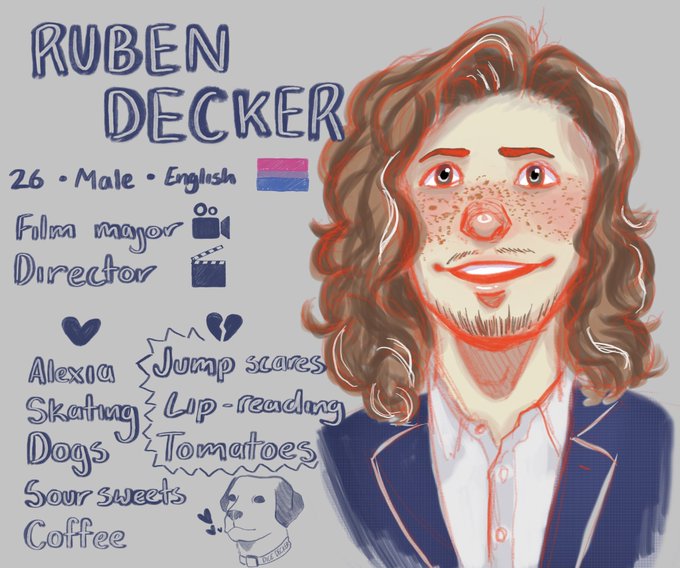 RUBEN
DECKER
26 • Male • English
Film major
Director
Alexia
Skating
Dogs
Sour sweets
Coffee
Jump scares
Lip-reading
Tomatoes